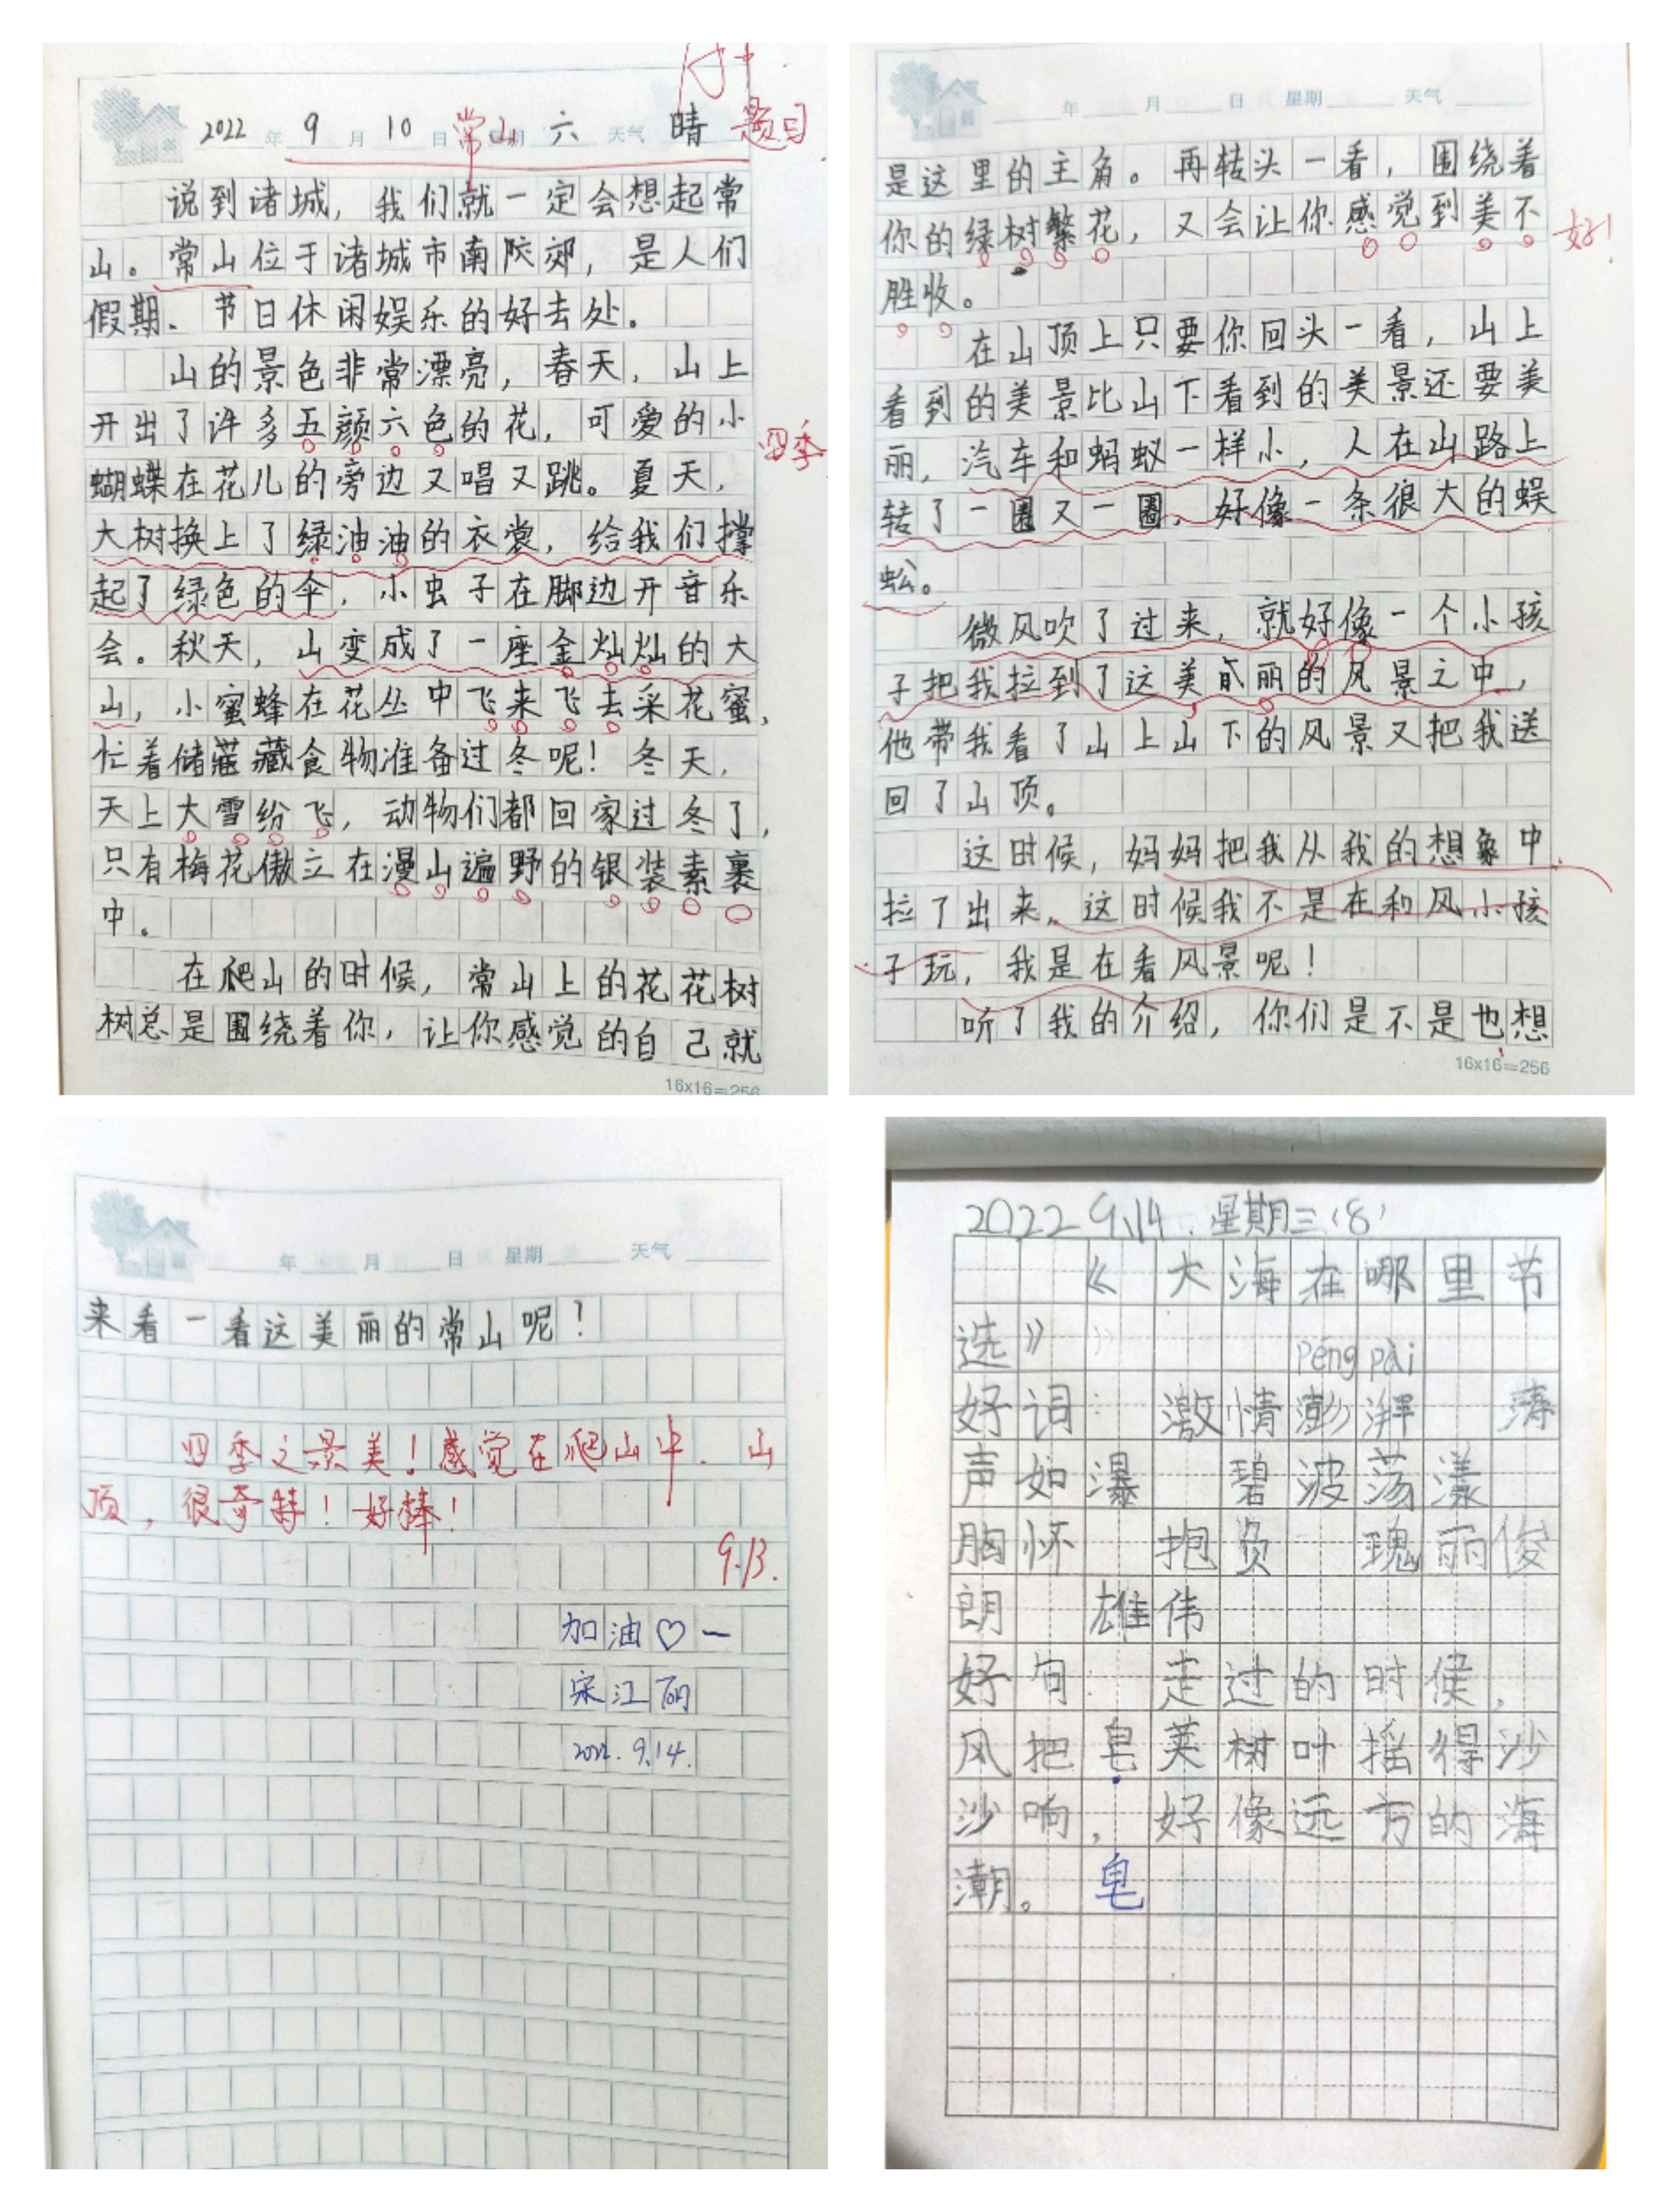 优+
2022年9月10日 星期六 天气晴
常山 题目
说到诸城，我们就一定会想起常
山。常山位于诸城市南郊，是人们
假期、节日休闲娱乐的好去处。
山的景色非常漂亮，春天，山上
开出了许多五颜六色的花，可爱的小
四季
蝴蝶在花儿的旁边又唱又跳。夏天，
大树换上了绿油油的衣裳，给我们撑
起了绿色的伞，小虫子在脚边开音乐
会。秋天，山变成了一座金灿灿的大
山，小蜜蜂在花丛中飞来飞去采花蜜，
忙着储藏食物准备过冬呢！冬天，
天上大雪纷飞，动物们都回家过冬了，
只有梅花傲立在漫山遍野的银装素裹
中。
在爬山的时候，常山上的花花树
树总是围绕着你，让你感觉的自己就
16x16=256
年 月 日 星期 天气
是这里的主角。再转头一看，围绕着
你的绿树繁花，又会让你感觉到美不
好！
胜收。
在山顶上只要你回头一看，山上
看到的美景比山下看到的美景还要美
丽，汽车和蚂蚁一样小，人在山路上
转了一圈又一圈，好像一条很大的蜈
蚣。
微风吹了过来，就好像一个小孩
子把我拉到了这美丽的风景之中，
他带我看了山上山下的风景又把我送
回了山顶。
这时候，妈妈把我从我的想象中
拉了出来，这时候我不是在和风小孩
子玩，我是在看风景呢！
听了我的介绍，你们是不是也想
16x16=256
年 月 日 星期 天气
来看一看这美丽的常山呢！
四季之景美！感觉在爬山中、山
顶，很奇特！好棒！
9.13.
加油♡一
宋江丽
2022.9.14.
2022 9.14. 星期三(8)
《大海在哪里节
选》
péng pài
好词：激情澎湃 涛
声如瀑 碧波荡漾
胸怀 抱负 瑰丽俊
朗 雄伟
好句：走过的时候，
风把皂荚树叶摇得沙
沙响，好像远方的海
潮。 皂